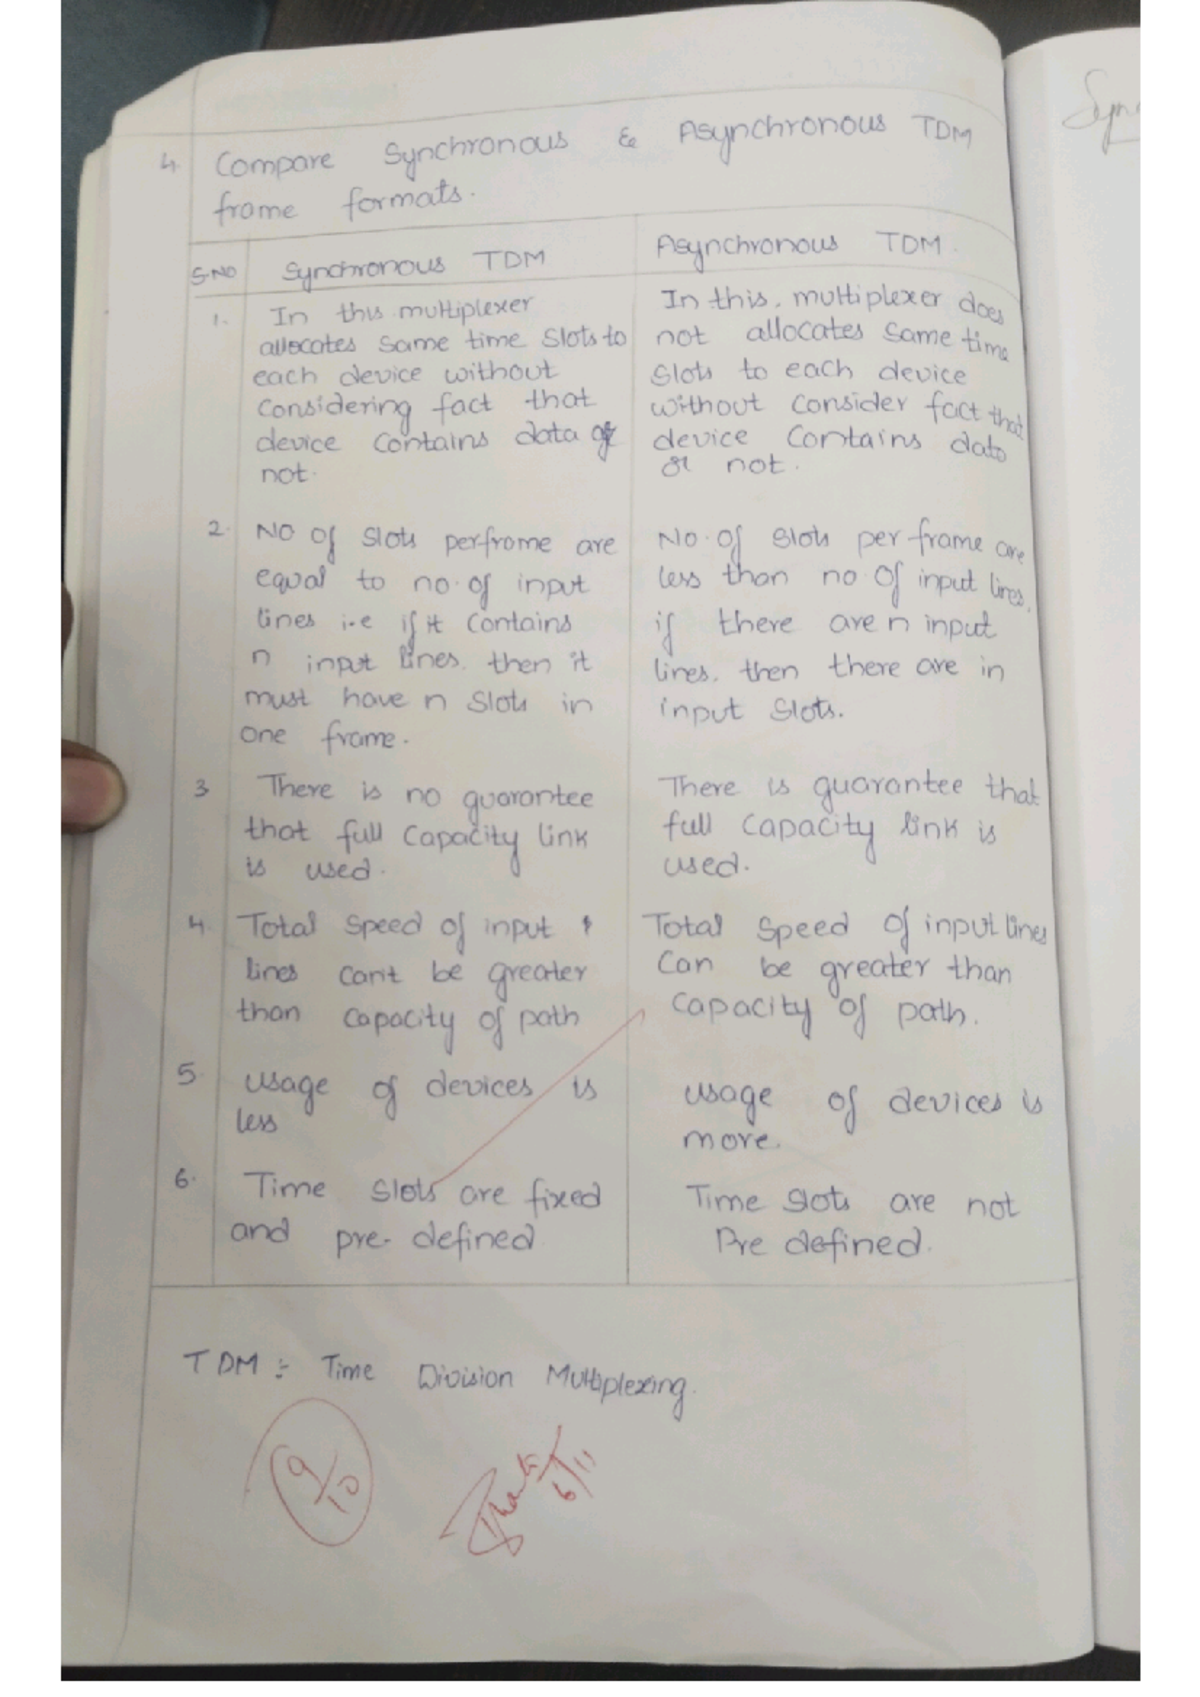 4. Compare Synchronous & Asynchronous TDM
frame formats.
S.NO Synchronous TDM
Asynchronous TDM.
1. In this multiplexer
allocates same time slots to
each device without
considering fact that
device contains data or
not.
In this, multiplexer does
not allocates same time
slots to each device
without consider fact that
device contains data
or not.
2. NO of slots perframe are
equal to no. of input
lines i.e if it contains
n input lines. then it
must have n slots in
one frame.
No. of slots per frame are
less than no. of input lines.
if there are n input
lines. then there are in
input slots.
3 There is no guarantee
that full capacity link
is used.
There is guarantee that
full capacity link is
used.
4. Total speed of input
lines can't be greater
than capacity of path
Total speed of input lines
can be greater than
capacity of path.
5. usage of devices is
less
usage of devices is
more.
6. Time slots are fixed
and pre-defined
Time slots are not
Pre defined.
TDM :- Time Division Multiplexing.
9/10
6/11